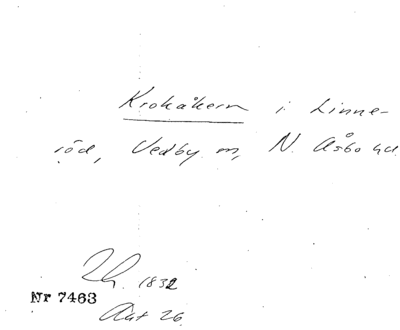 Krokåkern i Linne-
röd, Vedby sn, N. Åsbo hd
1832
Nr 7463
Akt 26